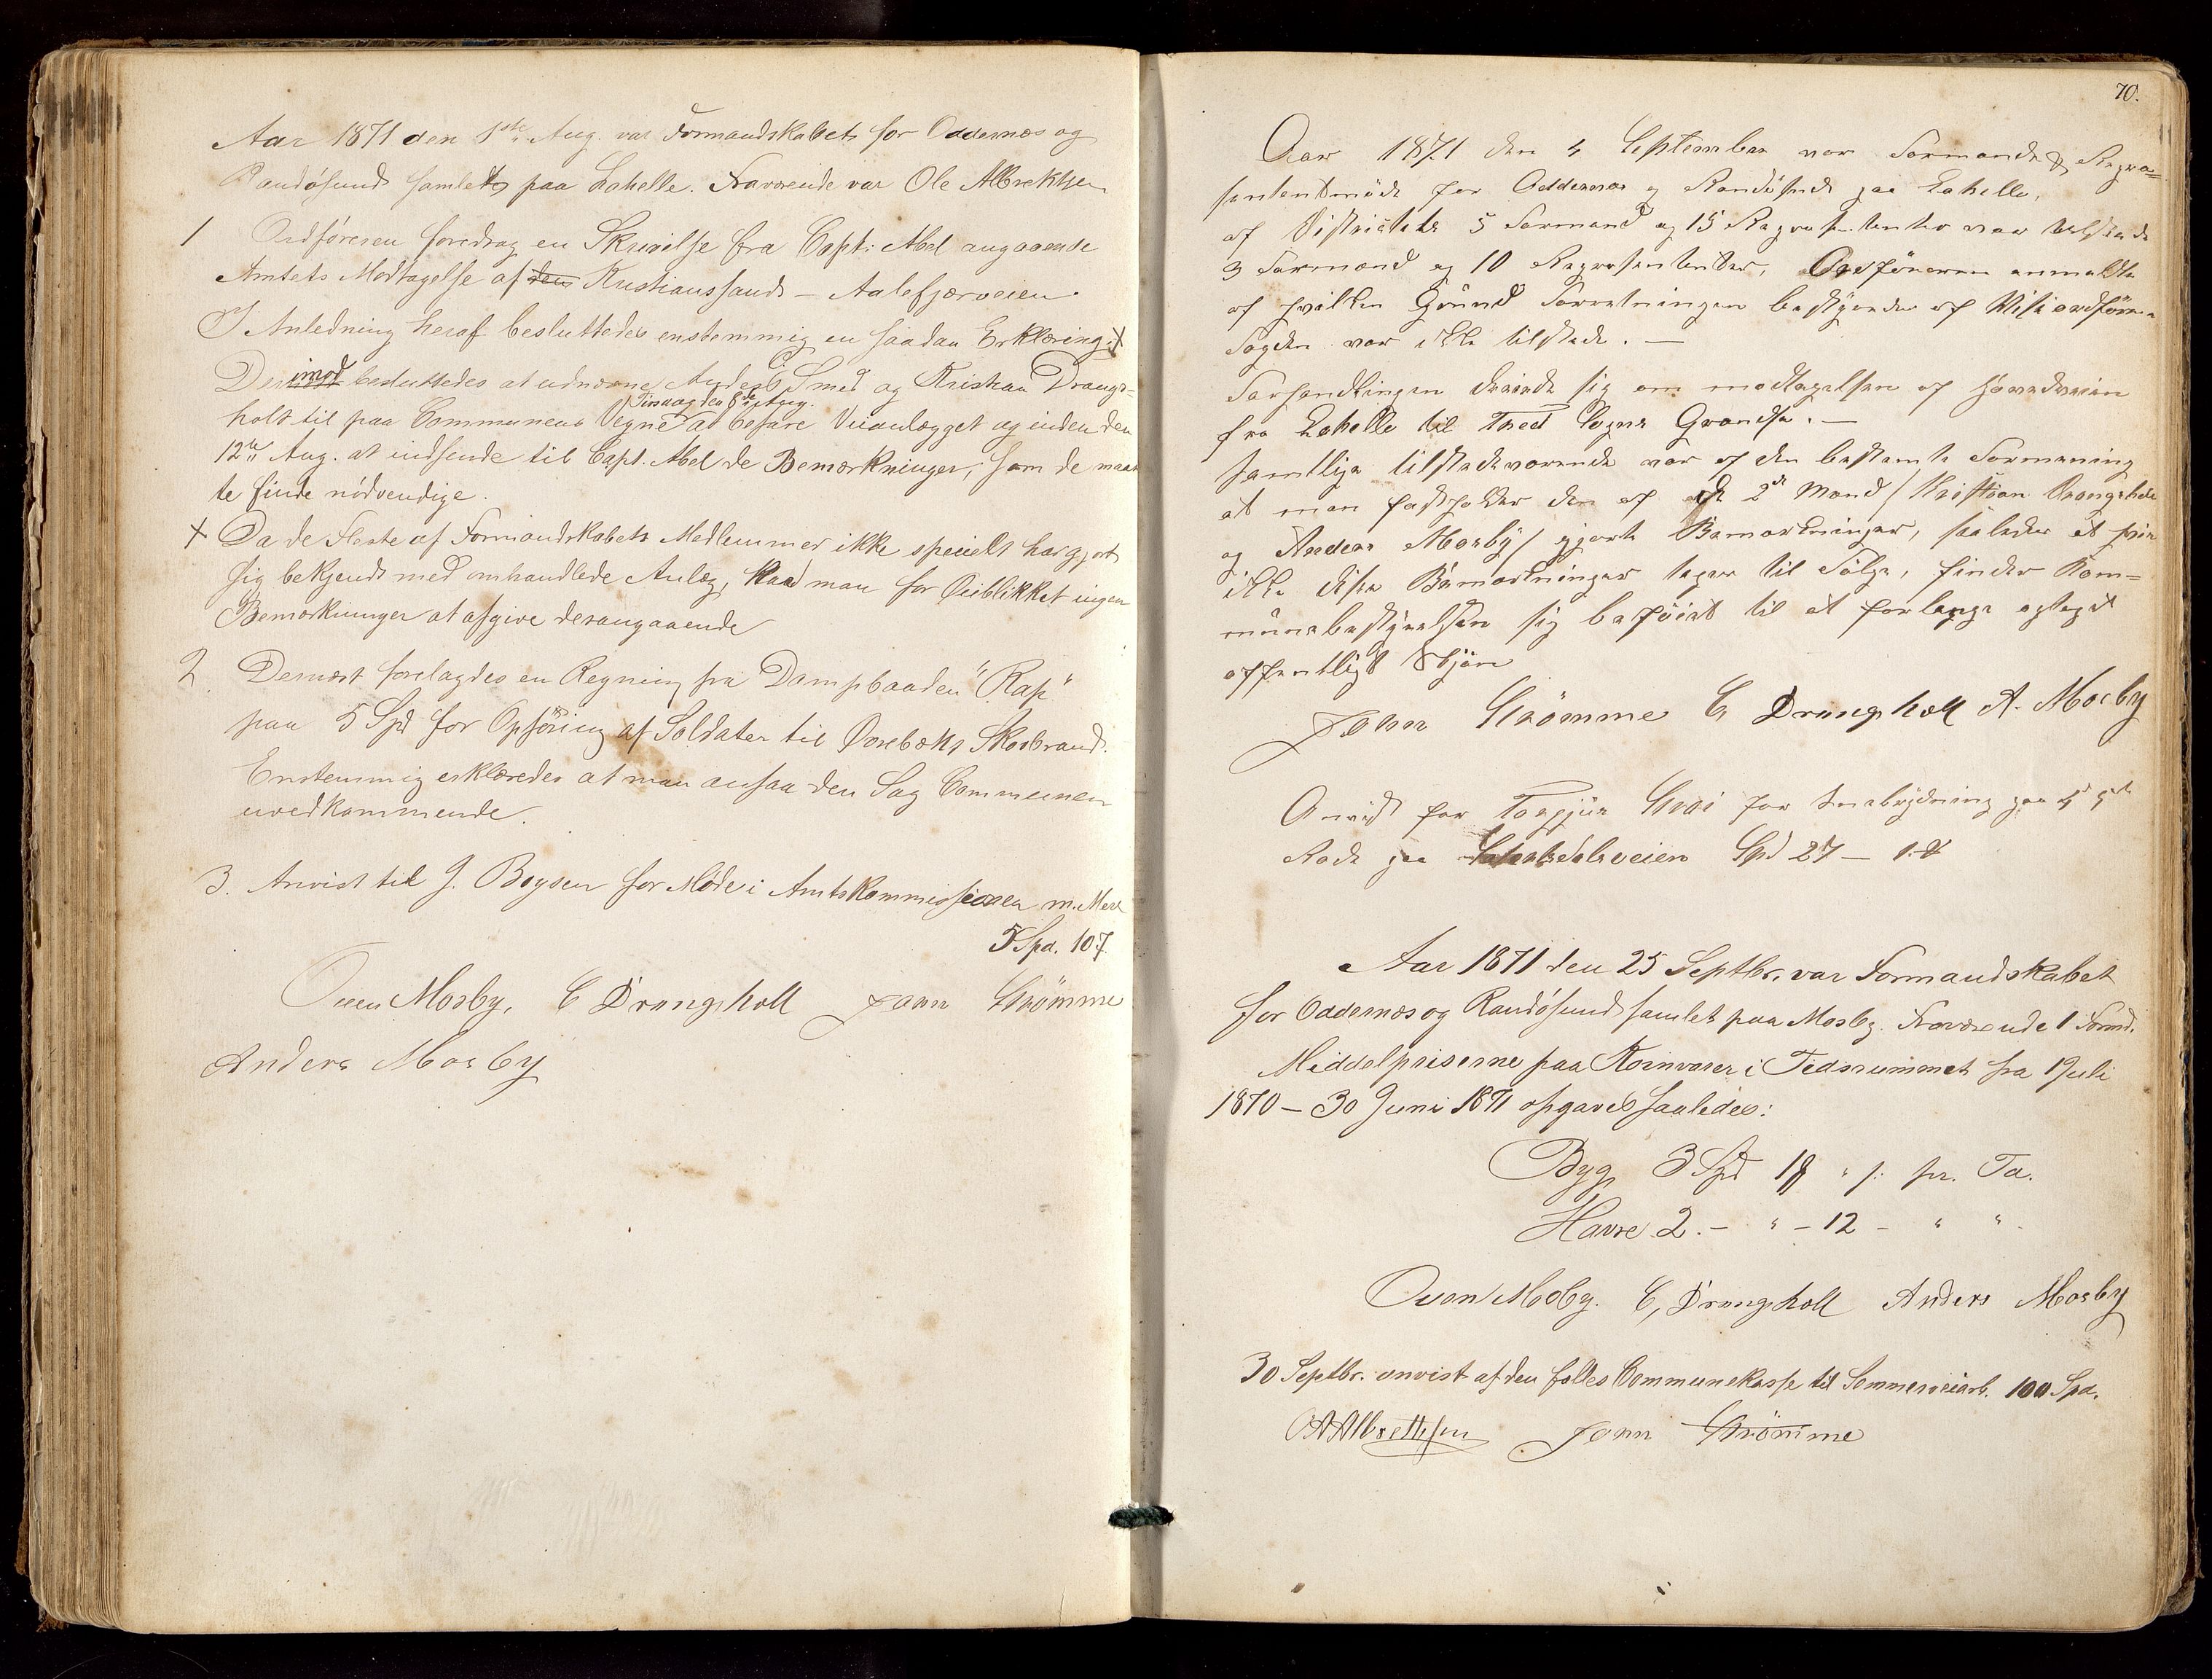 Aar 1871 den 1ste Aug. var Formandskabet for Oddernæs og
Randøsund samlet paa Lahelle. Fraværende var Ole Albrektsen
1 Ordføreren foredrog en Skrivelse fra Capt: Abel angaaende
Amtets Modtagelse af den Kristianssands - Aalefjærveien.
I Anledning heraf besluttedes enstemmig en saadan Erklæring: X
Derimod besluttedes at udnævne Anders Smed og Kristian Drangs-
Tirsdag den 8de Aug.
holt til paa Communens Vegne at befare Veianlægget og inden den
12te Aug. at indsende til Capt. Abel de Bemærkninger, som de maat
te finde nödvendige.
X Da de Fleste af Formandskabets Medlemmer ikke specielt har gjort
sig bekjendt med omhandlede Anlæg, har man for Öieblikket ingen
Bemærkninger at afgive desangaaende
2. Dernæst forelagdes en Regning fra Dampbaaden "Rap"
paa 5 Spd for Opföring af Soldater til Skovbrand.
Enstemmig erklæredes at man ansaa den Sag Communen
uvedkommende.
3. Anvist til J. Boysen for Möde i Amtskommissionen m. Mere
5 Spd. 107.
Ouen Mosby, C Drangsholt Jann Strömme
Anders Mosby
70.
Aar 1871 den 4 September var Formands & Repræ=
sentantmöde for Oddernæs og Randösund paa Lahelle,
af Districtets 5 Formænd og 15 Repræsentanter var tilstede
3 Formænd og 10 Repræsentanter, Ordföreren anmeldte
af hvilken Grund Forretningen bestyredes af Viseordförer
Sogden var ikke tilstede. —
Forhandlingen dreiede sig om modtagelsen af hovedveien
fra Lahelle til Tveit Sogns Grændse. —
samtlige tilstedeværende var af den bestemte Formening
at man fastholder den af de 2de Mænd / Kristian Drangsholt
og Anders Mosby / gjorte Bemærkninger, saaledes at hvis
ikke disse Bemærkninger tages til Fölge, finder Kom=
munebestyrelsen sig beföiet til at forlange optaget
offentligt Skjön
Jann Strömme C Drangsholt A. Mosby
Anvist for Torgjus for Snebrydning paa 4de 5te
Rode paa Spd 27 —
Aar 1871 den 25 Septbr. var Formandskabet
for Oddernæs og Randösund samlet paa Mosby. Fraværende 1 Formd.
Middelpriserne paa Kornvarer i Tidsrummet fra 1 Juli
1870 — 30 Juni 1871 opgaves saaledes:
Byg 3 Spd 18 " s: pr. Tø.
Havre 2. — " — 12 — " "
Ouen Mosby. C, Drangsholt Anders Mosby
30 Septbr. anvist af den fælles Communekasse til Sommerveiarb. 100 Spd.
OAAlbrettsen Jann Strömme